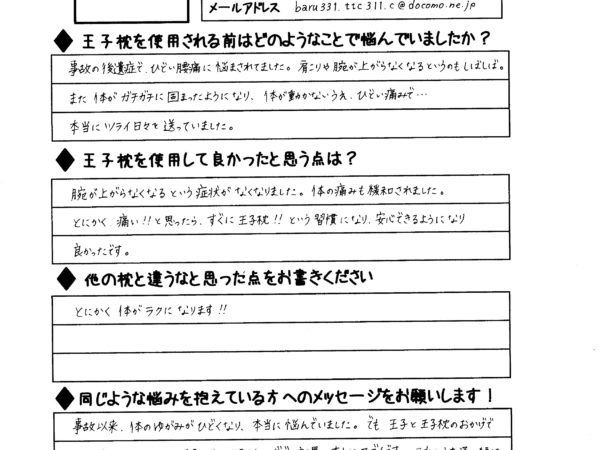 メールアドレス baru331.ttc311.c@docomo.ne.jp
◆ 王子枕を使用される前はどのようなことで悩んでいましたか？
事故の後遺症で、ひどい腰痛に悩まされてました。肩こりや腕が上がらなくなるというのもしばしば。
また 体が ガチガチに 固まったようになり、体が動かないうえ、ひどい痛みで…
本当にツライ日々を送っていました。
◆ 王子枕を使用して良かったと思う点は？
腕が上がらなくなるという症状がなくなりました。体の痛みも緩和されました。
とにかく、痛い!!と思ったら、すぐに王子枕!!という習慣になり、安心できるようになり
良かったです。
◆ 他の枕と違うなと思った点をお書きください
とにかく 体がラクになります!!
◆ 同じような悩みを抱えている方へのメッセージをお願いします！
事故以来、体のゆがみがひどくなり、本当に悩んでいました。でも 王子と王子枕のおかげで